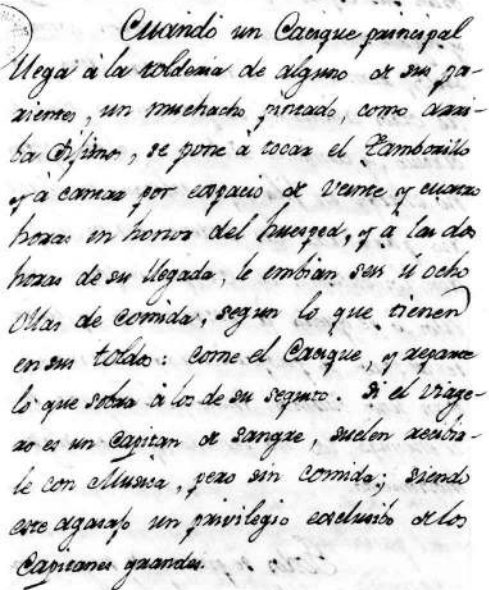 Cuando un Cacique principal
llega á la tolderia de alguno de sus pa-
rientes, un muchacho pintado, como arri-
ba dijimos, se pone á tocar el Tamborillo
y á cantar por espacio de veinte y cuatro
horas en honor del huesped, y á las dos
horas de su llegada, le embian seis ú ocho
Ollas de comida, segun lo que tienen
en sus toldos: come el Cacique, y reparte
lo que sobra á los de su sequito. Si el viage-
ro es un Capitan de sangre, suelen recibir-
le con Musica, pero sin comida; siendo
este agasajo un privilegio exclusibo de los
Capitanes grandes.